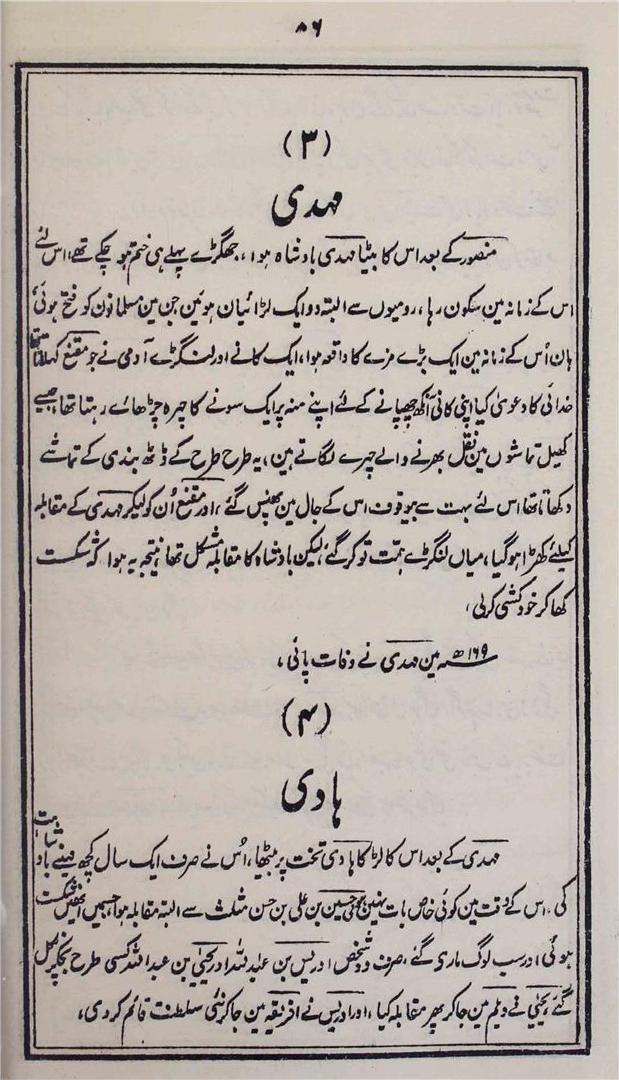 ۸۶
(۳)
مہدی
منصور کے بعد اس کا بیٹا مہدی بادشاہ ہوا، جھگڑے پہلے ہی ختم ہو چکے تھے، اس لئے
اس کے زمانہ مین سکون رہا، رومیوں سے البتہ دو ایک لڑائیان ہوئین جن مین مسلمانون کو فتح ہوئی،
ہان اُس کے زمانہ مین ایک بڑے مزے کا واقعہ ہوا، ایک کانے اور لنگڑے آدمی نے جو مقنع کہلاتا تھا
خدائی کا دعویٰ کیا اپنی کانی آنکھ چھپانے کے لئے اپنے منہ پر ایک سونے کا چہرہ چڑھائے رہتا تھا، جیسے
کھیل تماشوں مین نقل بھرنے والے چہرے لگاتے ہین، یہ طرح طرح کے ڈٹھ بندی کے تماشے
دکھاتا تھا اس لئے بہت سے بیوقوف اس کے جال مین پھنس گئے، اور مقنع اُن کو لیکر مہدی کے مقابلہ
کیلئے کھڑا ہو گیا، میاں لنگڑے ہمت تو کر گئے، لیکن بادشاہ کا مقابلہ مشکل تھا، نتیجہ یہ ہوا کہ شکست
کھا کر خودکشی کر لی،
۱۶۹ھ مین مہدی نے وفات پائی،
(۴)
ہادی
مہدی کے بعد اس کا لڑکا ہادی تخت پر بیٹھا، اُس نے صرف ایک سال کچھ مہینے بادشاہت
کی، اس کے وقت مین کوئی خاص بات نہین ہوئی حسین بن علی بن حسن مثلث سے البتہ مقابلہ ہوا، جسمیں انھیں شکست
ہوئی اور سب لوگ مارے گئے، صرف دو شخص ادریس بن عبداللہ اور یحییٰ بن عبداللہ کسی طرح بچکر نکل
گئے، یحییٰ نے دیلم مین جا کر پھر مقابلہ کیا، اور ادریس نے افریقہ مین جا کر نئی سلطنت قائم کر دی،